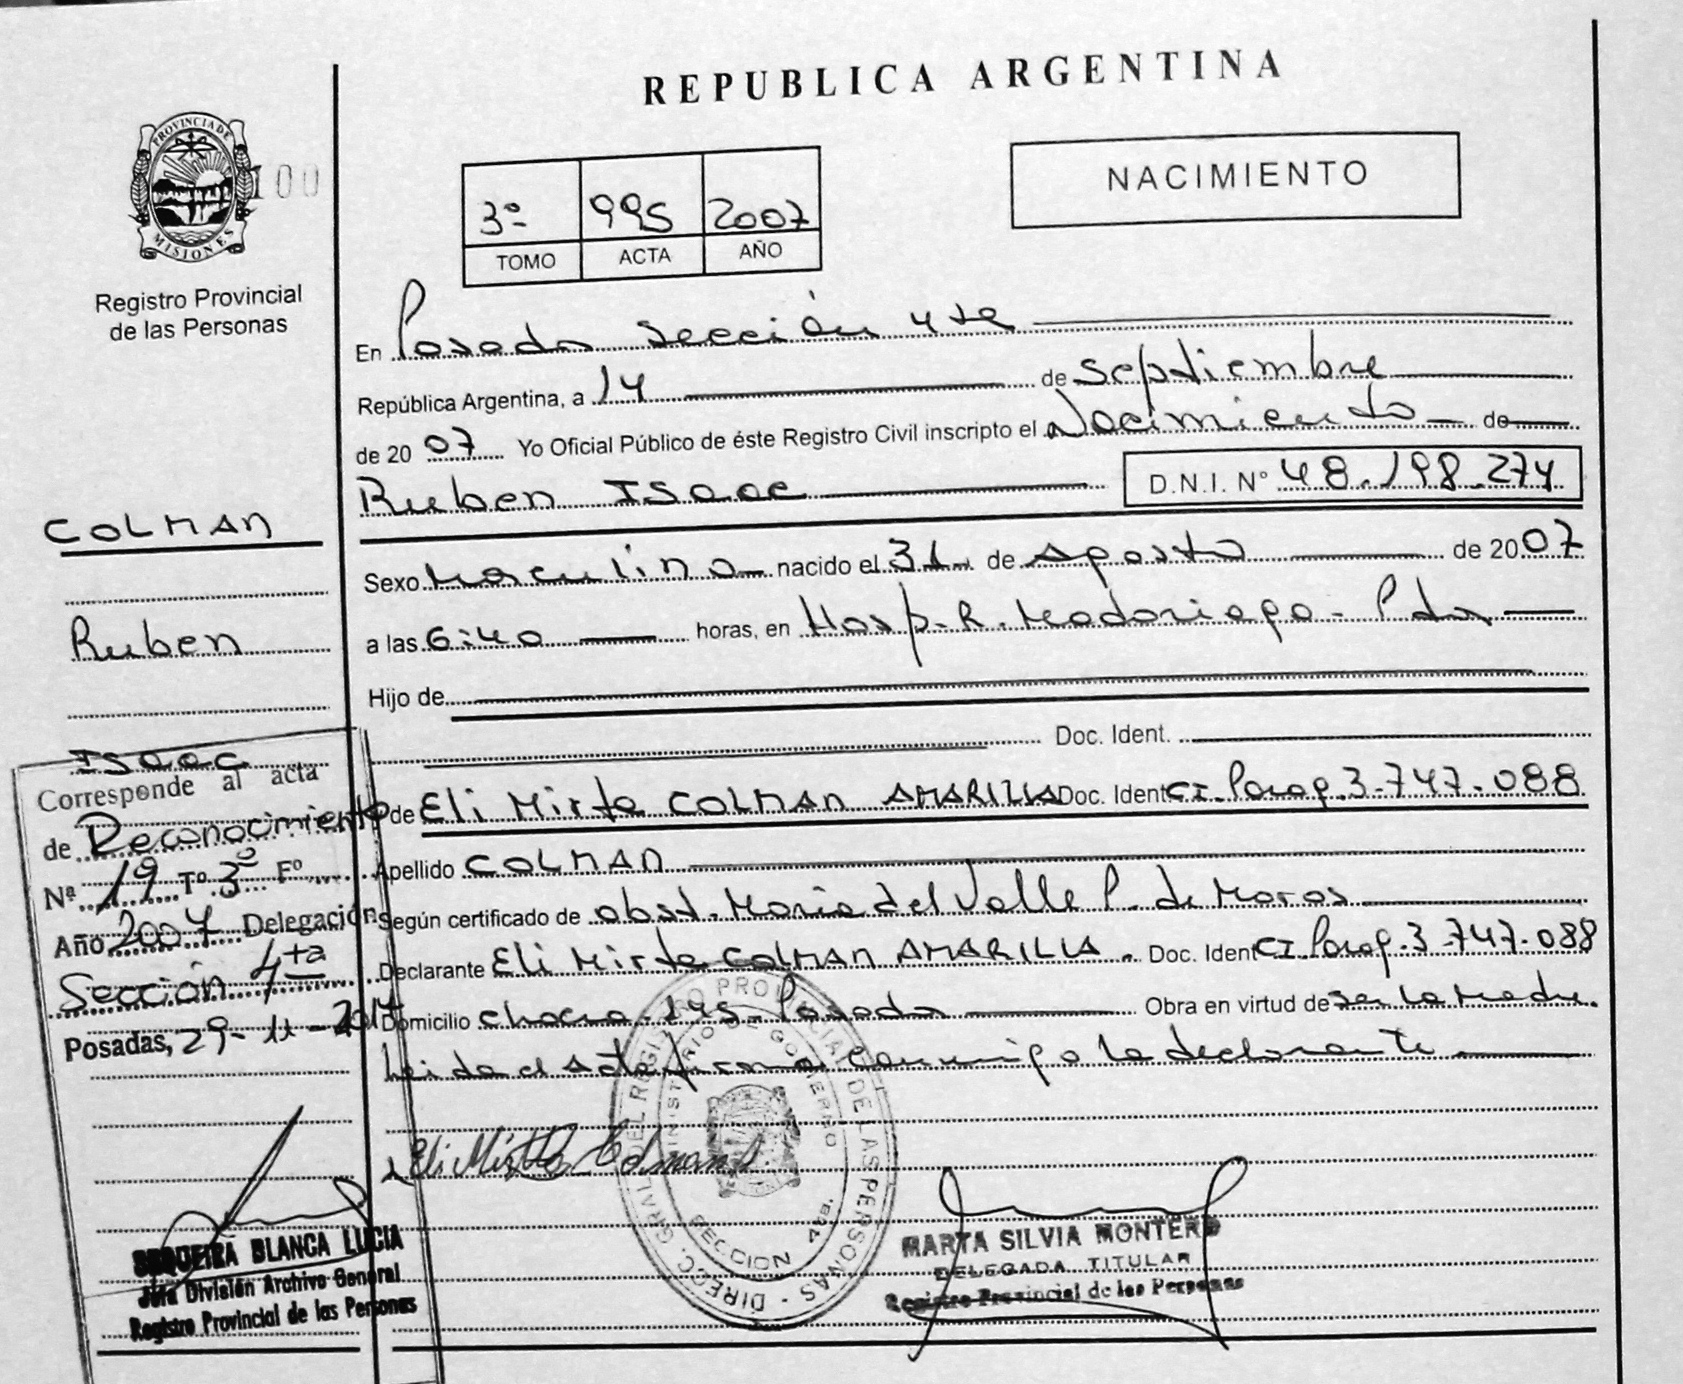 REPUBLICA ARGENTINA
PROVINCIA DE
MISIONES
100
Registro Provincial
de las Personas
3º 995 2007
TOMO ACTA AÑO
NACIMIENTO
En Posadas sección 4ta
República Argentina, a 14 de septiembre
de 2007 Yo Oficial Público de éste Registro Civil inscripto el Nacimiento de
Ruben Isaac D.N.I. Nº 48.198.274
COLMAN
Ruben
Isaac
Sexo Masculino nacido el 31 de Agosto de 2007
a las 6:40 horas, en Hosp. R. Madariaga - Pdas
Hijo de
Doc. Ident.
de Eli Mirta COLMAN AMARILLA Doc. Ident CI. Parag. 3.747.088
Apellido COLMAN
Según certificado de obst. Maria del Valle P. de Moros
Declarante Eli Mirta COLMAN AMARILLA. Doc. Ident CI. Parag. 3.747.088
Domicilio chacra 195. Posadas Obra en virtud de ser la madre.
Leida el acta firma conmigo la declarante
Corresponde al acta
de Reconocimiento
Nª 19 Tº 3º Fº
Año 2007 Delegación
Sección 4ta
Posadas, 29-11-2017
Eli Mirtha Colman A.
DIRECC. GRAL. DEL REGISTRO PROVINCIAL DE LAS PERSONAS
MINISTERIO DE GOBIERNO
SECCION 4ta.
SEQUEIRA BLANCA LUCIA
Jefa División Archivo General
Registro Provincial de las Personas
MARTA SILVIA MONTERO
DELEGADA TITULAR
Registro Provincial de las Personas